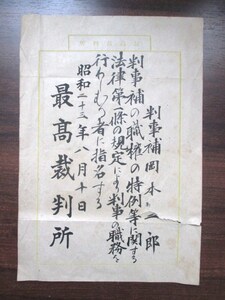 判事補岡本二郎
判事補の職権の特例等に関する
法律第一條の規定により判事の職務を
行わしむる者に指名する
昭和二十三年八月十日
最高裁判所